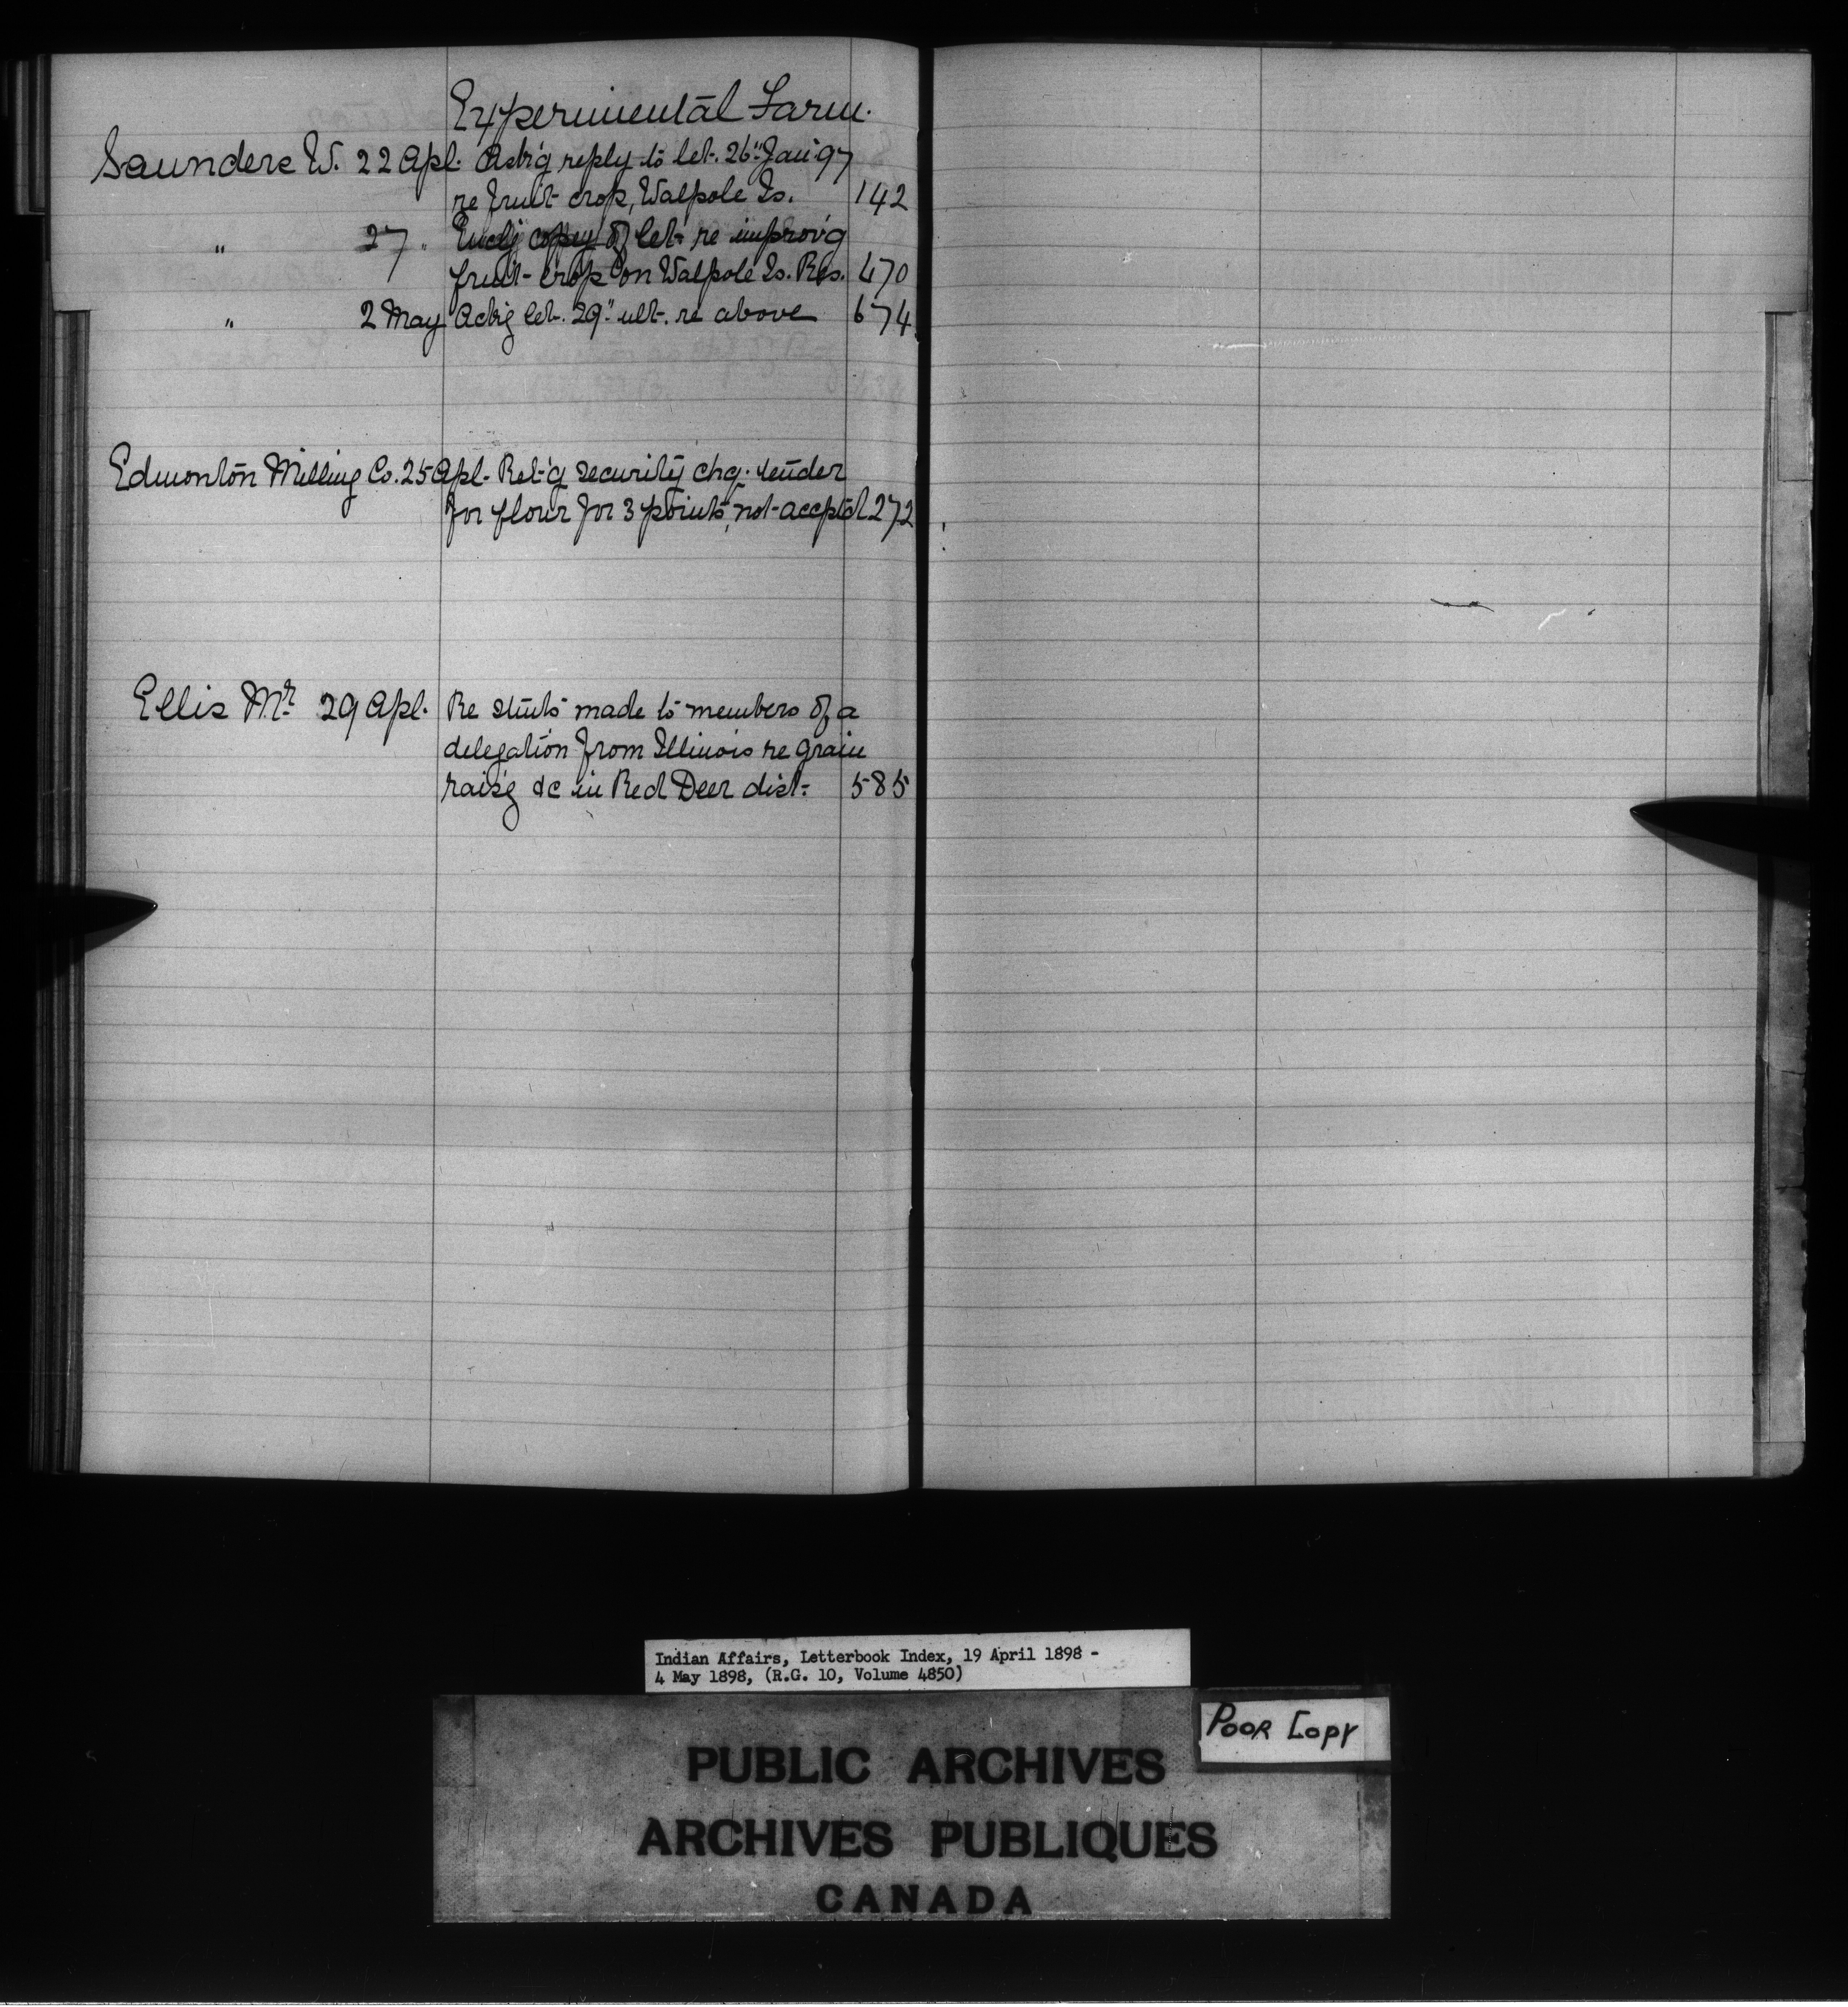 Experimental Farm.
Saunders W. 22 Apl. Ask'g reply to let. 26" Jan '97
re fruit crop, Walpole Is. 142
" 27 " Encl'g copy of let. re improv'g
fruit crop on Walpole Is. Res. 470
" 2 May Ackg let. 29" ult. re above 674
Edmonton Milling Co. 25 Apl. Ret'g security chq. tender
for flour for 3 points, not accptd 272
Ellis Mr 29 Apl. Re stmts made to members of a
delegation from Illinois re grain
rais'g &c in Red Deer dist. 585
Indian Affairs, Letterbook Index, 19 April 1898 -
4 May 1898, (R.G. 10, Volume 4850)
POOR COPY
PUBLIC ARCHIVES
ARCHIVES PUBLIQUES
CANADA